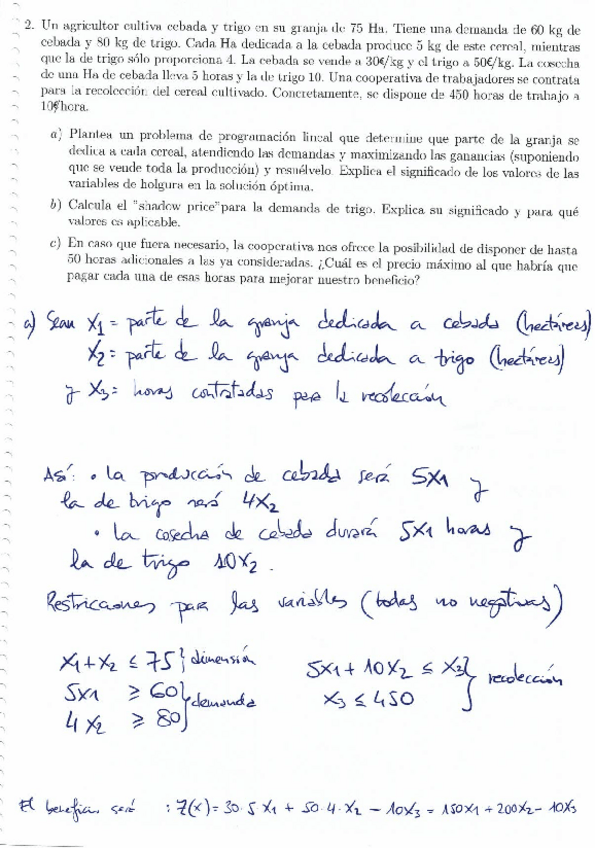 2. Un agricultor cultiva cebada y trigo en su granja de 75 Ha. Tiene una demanda de 60 kg de
cebada y 80 kg de trigo. Cada Ha dedicada a la cebada produce 5 kg de este cereal, mientras
que la de trigo sólo proporciona 4. La cebada se vende a 30€/kg y el trigo a 50€/kg. La cosecha
de una Ha de cebada lleva 5 horas y la de trigo 10. Una cooperativa de trabajadores se contrata
para la recolección del cereal cultivado. Concretamente, se dispone de 450 horas de trabajo a
10€/hora.
a) Plantea un problema de programación lineal que determine que parte de la granja se
dedica a cada cereal, atendiendo las demandas y maximizando las ganancias (suponiendo
que se vende toda la producción) y resuélvelo. Explica el significado de los valores de las
variables de holgura en la solución óptima.
b) Calcula el "shadow price"para la demanda de trigo. Explica su significado y para qué
valores es aplicable.
c) En caso que fuera necesario, la cooperativa nos ofrece la posibilidad de disponer de hasta
50 horas adicionales a las ya consideradas. ¿Cuál es el precio máximo al que habría que
pagar cada una de esas horas para mejorar nuestro beneficio?
a) Sean X1 = parte de la granja dedicada a cebada (hectáreas)
X2 = parte de la granja dedicada a trigo (hectáreas)
y X3 = horas contratadas para la recolección
Así: • la producción de cebada será 5X1 y
la de trigo será 4X2
• La cosecha de cebada durará 5X1 horas y
la de trigo 10X2.
Restricciones para las variables (todas no negativas)
X1+X2 ≤ 75} dimensión 5X1+10X2 ≤ X3
5X1 ≥ 60 } demanda X3 ≤ 450 } recolección
4X2 ≥ 80
El beneficio será : Z(x) = 30·5X1 + 50·4·X2 - 10X3 = 150X1 + 200X2 - 10X3